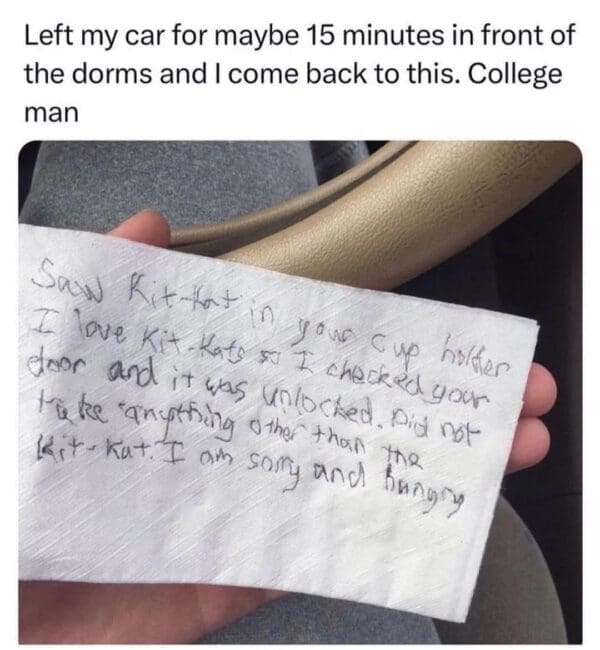 Left my car for maybe 15 minutes in front of
the dorms and I come back to this. College
man
Saw Kit-Kat in your cup holder
I love Kit-Kats so I checked your
door and it was unlocked. Did not
take anything other than the
Kit-Kat. I am sorry and hungry